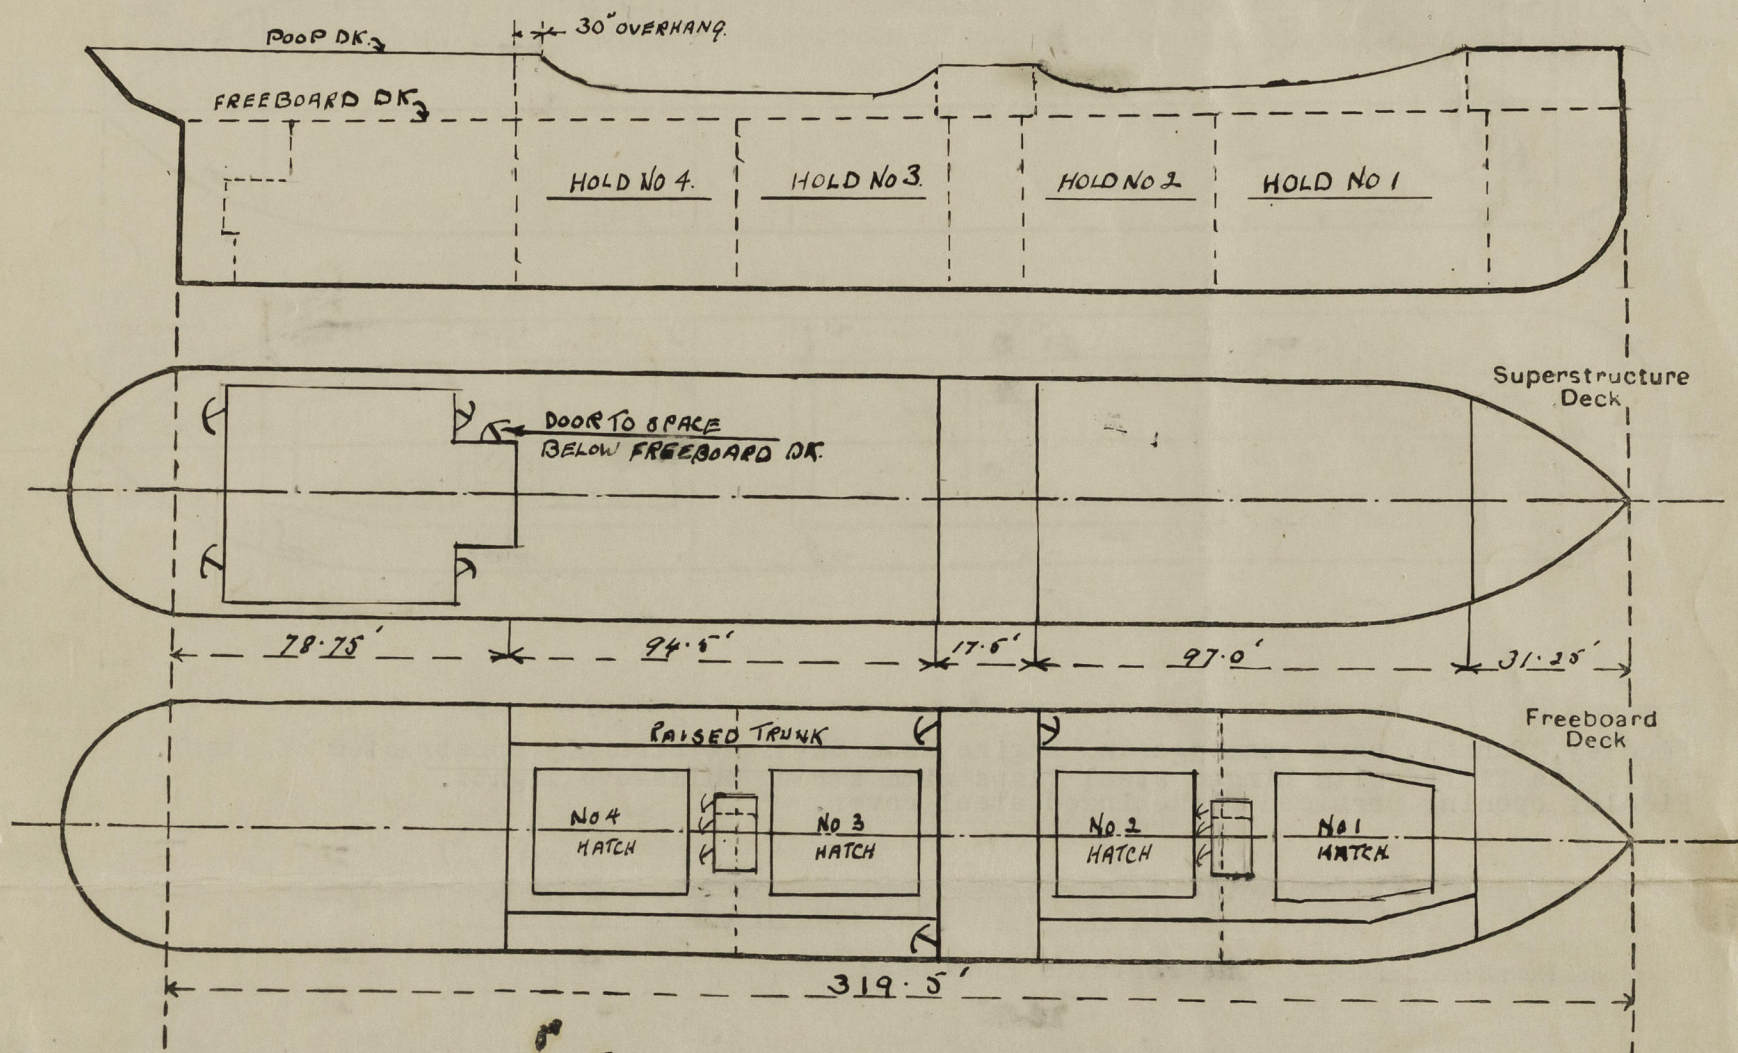 POOP DK.
30" OVERHANG.
FREEBOARD DK.
HOLD NO 4.
HOLD NO 3.
HOLD NO 2
HOLD NO 1
Superstructure
Deck
DOOR TO SPACE
BELOW FREEBOARD DK.
78·75'
94·5'
17·5'
97·0'
31·25'
Freeboard
Deck
RAISED TRUNK
NO 4
HATCH
NO 3
HATCH
NO 2
HATCH
NO 1
HATCH
319·5'